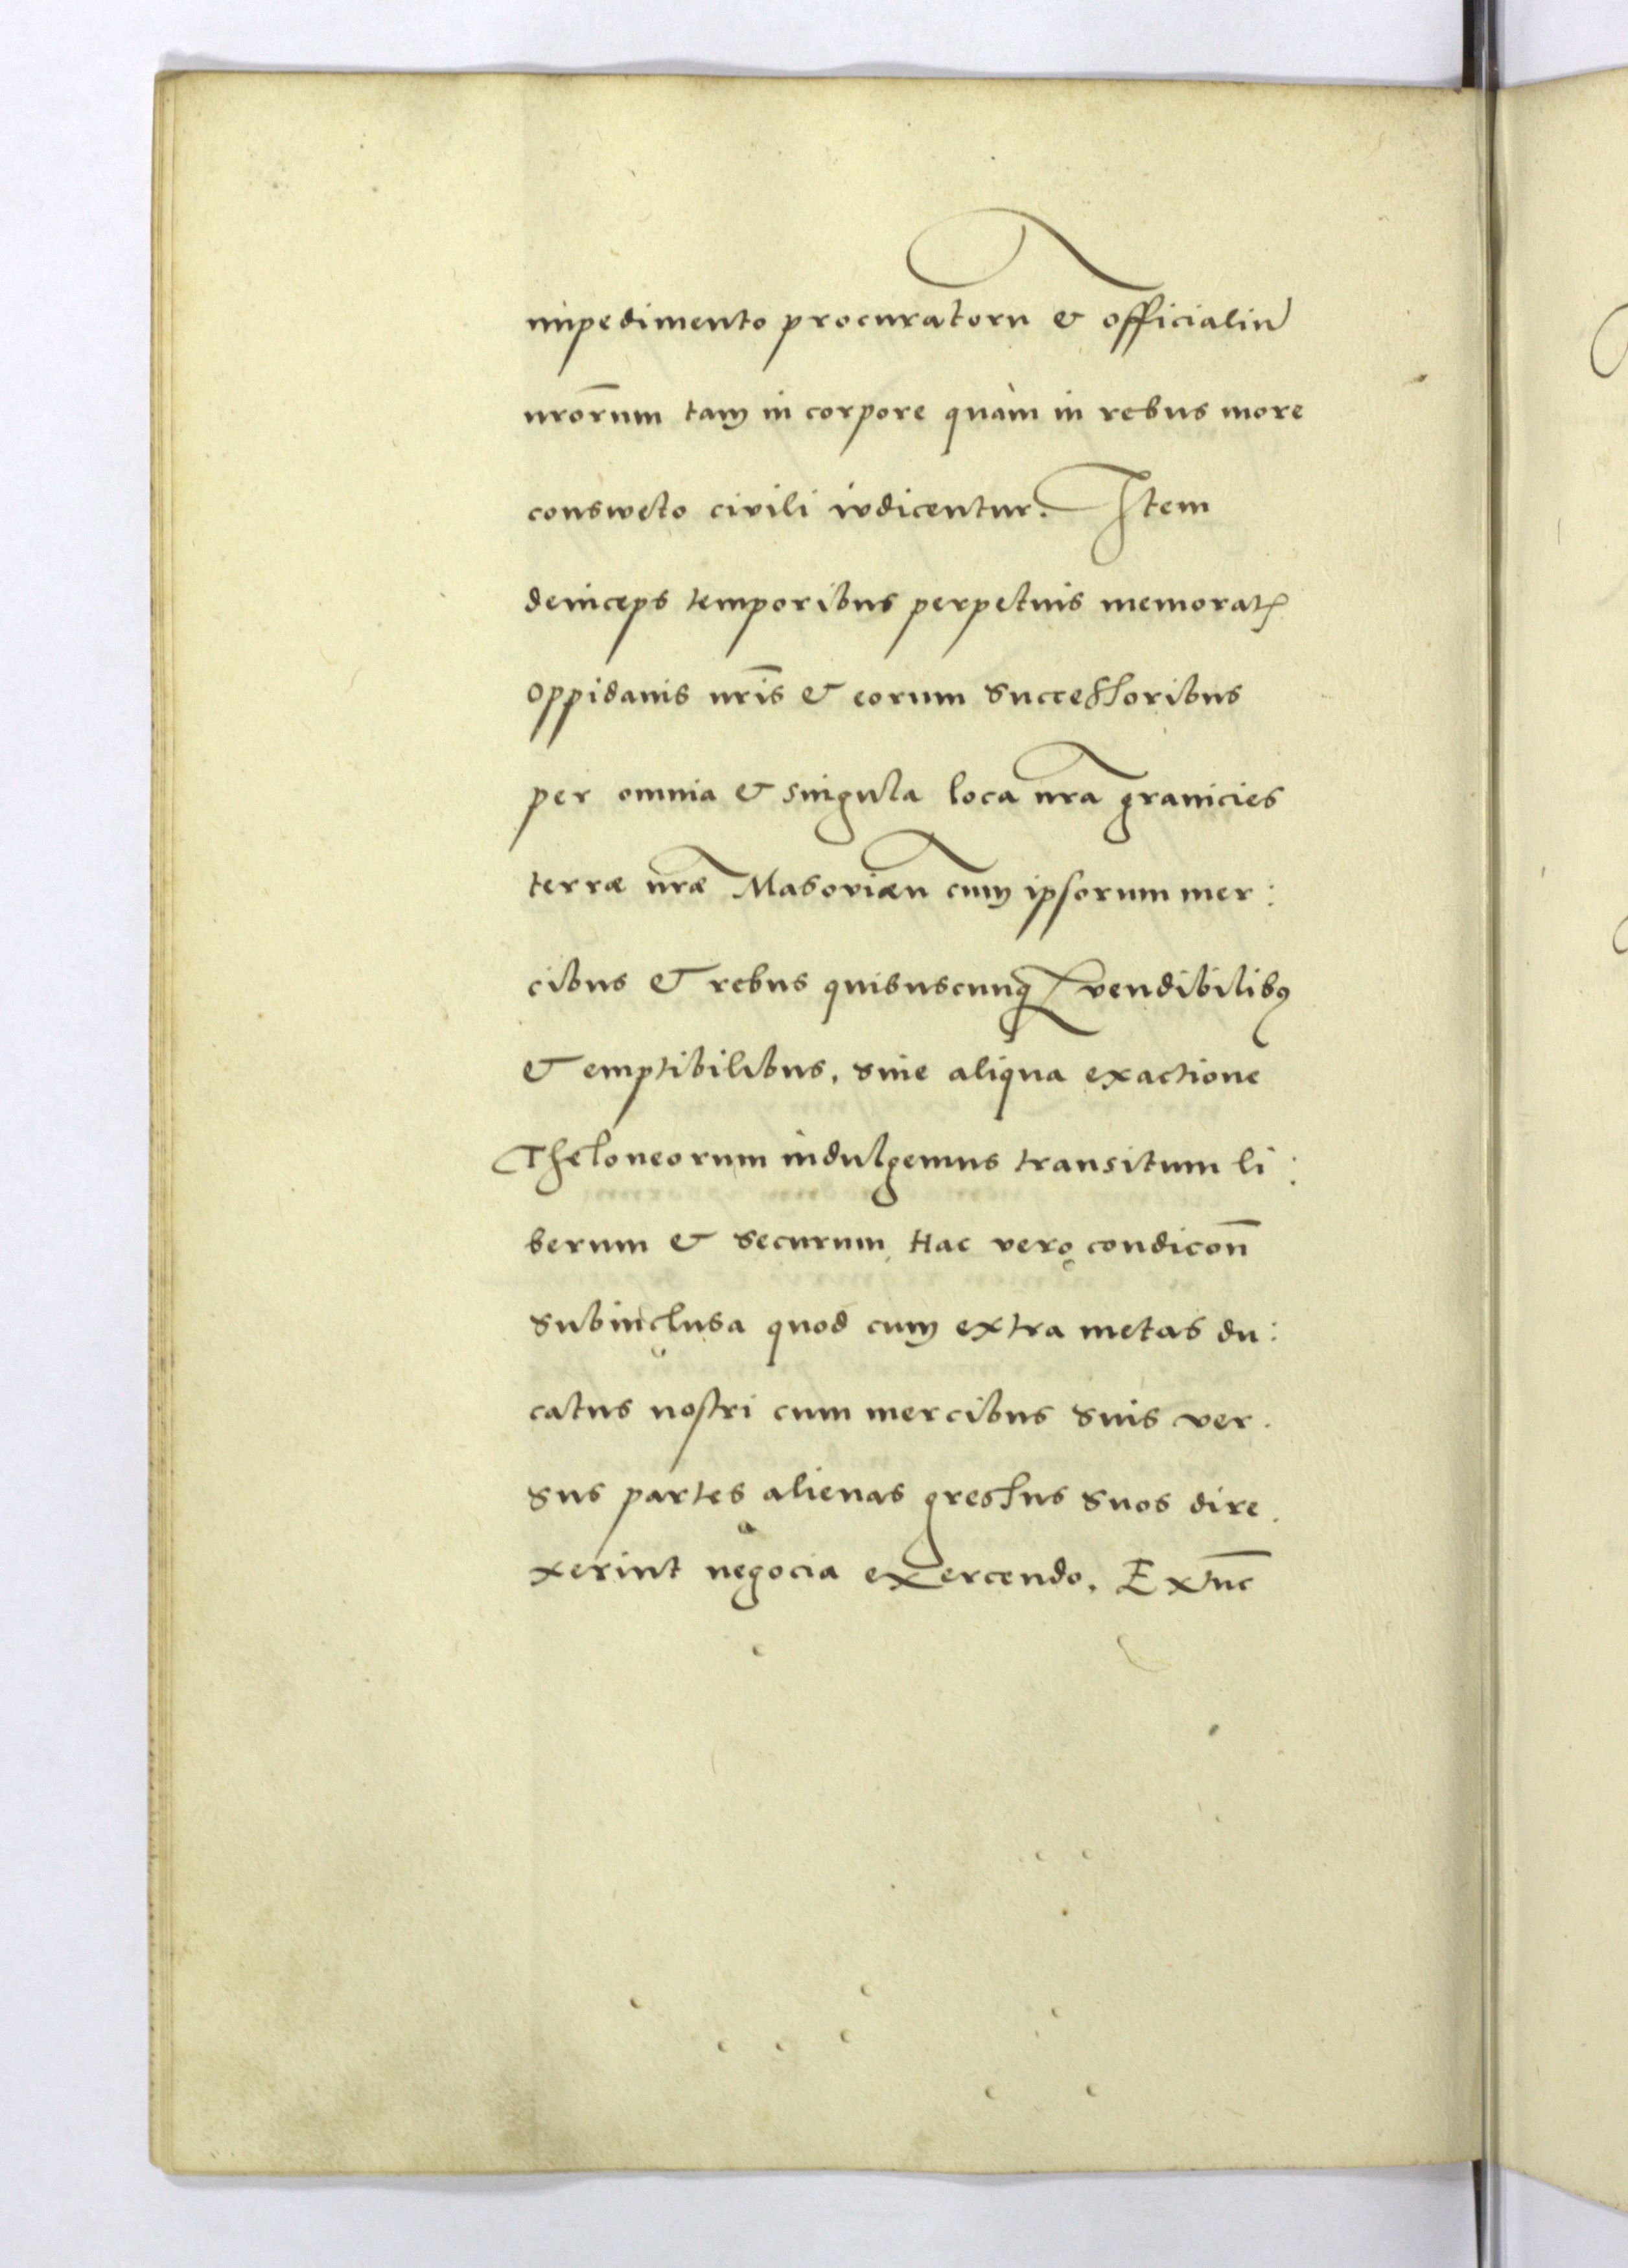 impedimento procuratoru & officialiu
nrōrum tam in corpore quàm in rebus more
consweto civili iudicentur. Item
deinceps temporibus perpetuis memorat
oppidanis nrīs & eorum successoribus
per omnia & singula loca nrā granicies
terræ nrǣ Masoviæn cum ipsorum mer:
cibus & rebus quibuscunq vendibilibꝰ
& emptibilibus, sine aliqua exactione
Theloneorum indulgemus transitum li:
berum & securum Hac vero condicōn
subinclusa quod cum extra metas du:
catus nostri cum mercibus suis ver.
sus partes alienas gressus suos dire.
xerint negocia exercendo. Extūc